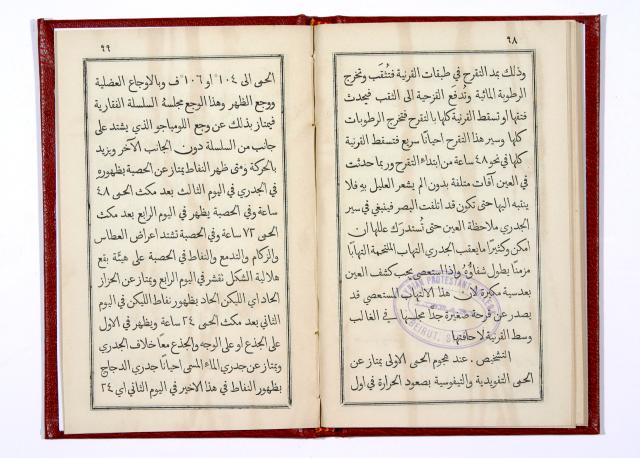 ٩٨
وذلك بمد التقرح في طبقات القرنية فتُثقَب وتخرج
الرطوبة المائية وتُدفَع القزحية الى الثقب فيحدث
فتقها او تسقط القرنية كلها بالتقرح فتخرج الرطوبات
كلها وسير هذا التقرح احيانًا سريع فتسقط القرنية
كلها في نحو ٤٨ ساعة من ابتداء التقرح وربما حدثت
في العين آفات متلفة بدون الم يشعر العليل به فلا
ينتبه اليها حتى تكون قد اتلفت البصر فينبغي في سير
الجدري ملاحظة العين حتى تُستدرَك عللها ان
امكن وكثيرًا ما يعقب الجدري التهاب الملتحمة التهابًا
مزمنًا يطول شفاؤُهُ واذا استعصى يجب كشف العين
بعدسية مكبرة لان هذا الالتهاب المستعصي قد
يصدر عن قرحة صغيرة جدًّا مجلسها في الغالب
وسط القرنية لا حافتها
التشخيص . عند هجوم الحمى الاولى يمتاز عن
الحمى التفويدية والتيفوسية بصعود الحرارة في اول
PROTESTANT
BEIRUT, S
٩٩
الحمى الى ١٠٤° او ١٠٦° ف وبالاوجاع العضلية
ووجع الظهر وهذا الوجع مجلسهُ السلسلة الفقارية
فيمتاز بذلك عن وجع اللومباجو الذي يشتد على
جانب من السلسلة دون الجانب الآخر ويزيد
بالحركة ومتى ظهر النفاط يمتاز عن الحصبة بظهوره
في الجدري في اليوم الثالث بعد مكث الحمى ٤٨
ساعة وفي الحصبة يظهر في اليوم الرابع بعد مكث
الحمى ٧٢ ساعة وفي الحصبة تشتد اعراض العطاس
والزكام والتدمع والنفاط في الحصبة على هيئة بقع
هلالية الشكل تقشر في اليوم الرابع ويمتاز عن الحزاز
الحاد اي الليكن الحاد بظهور نفاط الليكن في اليوم
الثاني بعد مكث الحمى ٢٤ ساعة ويظهر في الاول
على الجذع او على الوجه والجذع معًا خلاف الجدري
ويمتاز عن جدري الماء المسمى احيانًا جدري الدجاج
بظهور النفاط في هذا الاخير في اليوم الثاني اي ٢٤